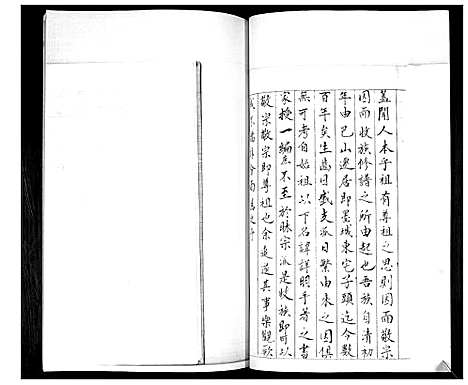 蓋聞人本乎祖有尊祖之思則因而敬宗
因而收族修譜之所由起也吾族自清初
年由巴山遷居即墨城東宅子頭迄今數
百年矣生齒日盛支派日繁由來之因俱
無可考自始祖以下名諱詳明手著之書
家授一編庶不至於昧宗派是收族即可以
敬宗敬宗即尊祖也余追述其事樂觀厥
成